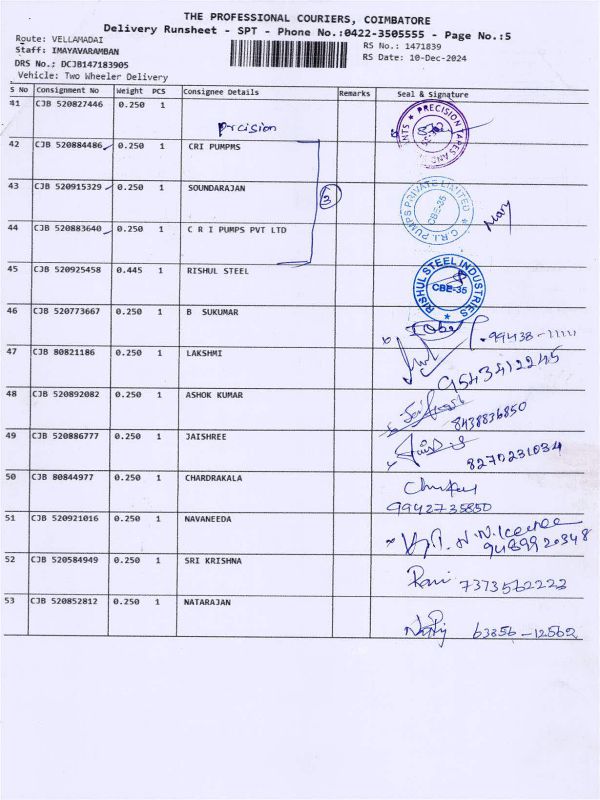 THE PROFESSIONAL COURIERS, COIMBATORE
Delivery Runsheet - SPT - Phone No.:0422-3505555 - Page No.:5
Route: VELLAMADAI RS No.: 1471839
Staff: IMAYAVARAMBAN RS Date: 10-Dec-2024
DRS No.; DCJB147183905
Vehicle: Two Wheeler Delivery
S No Consignment No Weight PCS Consignee Details Remarks Seal & Signature
41 CJB 520827446 0.250 1 prcision PRECISION TAPES AND
42 CJB 520884486 0.250 1 CRI PUMPMS
43 CJB 520915329 0.250 1 SOUNDARAJAN 3 C.R.I. PUMPS PRIVATE LIMITED CBE-35 Mary
44 CJB 520883640 0.250 1 C R I PUMPS PVT LTD
45 CJB 520925458 0.445 1 RISHUL STEEL RISHUL STEEL INDUSTRIES CBE-35
46 CJB 520773667 0.250 1 B SUKUMAR 99438-11111
47 CJB 80821186 0.250 1 LAKSHMI 9543412245
48 CJB 520892082 0.250 1 ASHOK KUMAR 8438836850
49 CJB 520886777 0.250 1 JAISHREE 8270231034
50 CJB 80844977 0.250 1 CHARDRAKALA 9942735850
51 CJB 520921016 0.250 1 NAVANEEDA 9489920348
52 CJB 520584949 0.250 1 SRI KRISHNA Ravi 7373562223
53 CJB 520852812 0.250 1 NATARAJAN 63856-12562